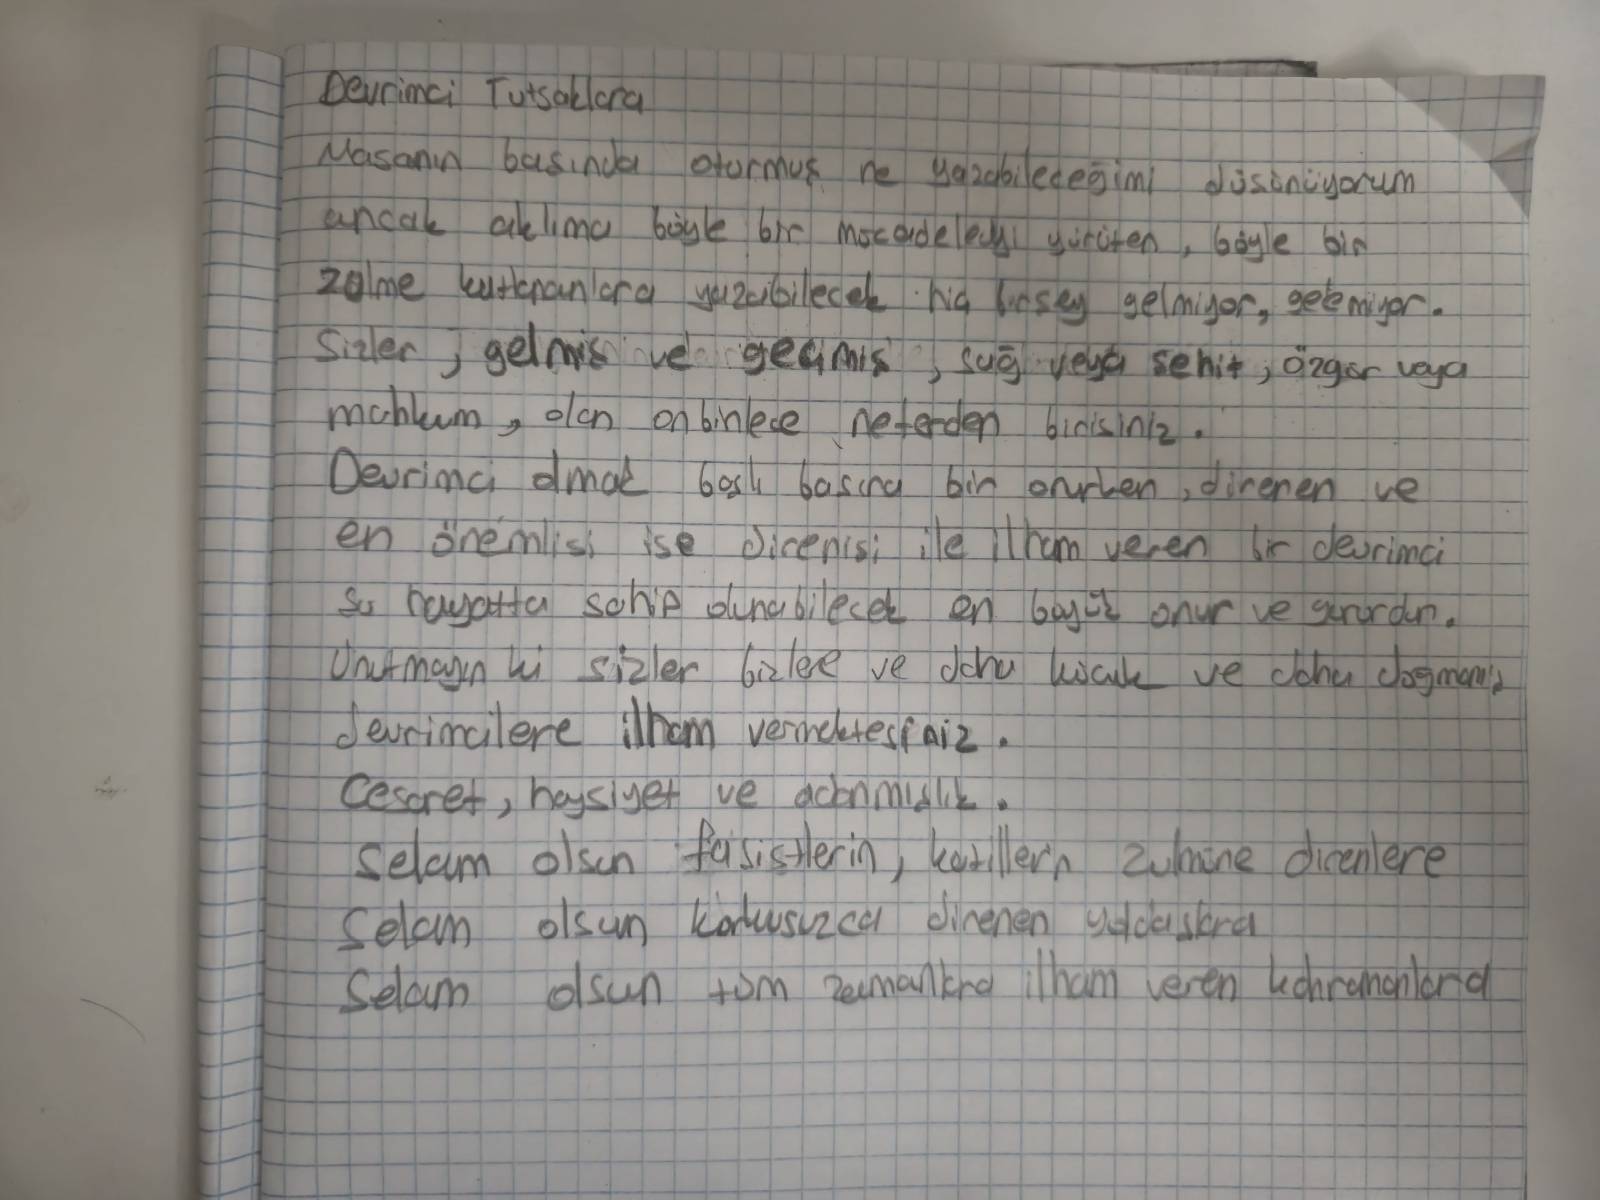 Devrimci Tutsaklara
Masanın basında oturmuş ne yazabileceğimi düsünüyorum
ancak aklıma böyle bir mücadeleyi yürüten, böyle bir
zulme yazabilecek hiç birsey gelmiyor, gelemiyor.
Sizler, gelmis ve gecmis, sağ veya sehit, özgür veya
mahkum, olan onbinlece neferden birisiniz.
Devrimci olmak baslı basına bir onurken, direnen ve
en önemlisi ise direnisi ile ilham veren bir devrimci
su hayatta sahip olunabilecek en büyük onur ve gururdur.
Unutmayın ki sizler bizlere ve daha kücük ve daha dogmamıs
devrimcilere ilham vermektesiniz.
Cesaret, haysiyet ve adanmıslık.
Selam olsun fasistlerin, katillerin zulmüne direnlere
Selam olsun korkusuzca direnen yoldaslara
Selam olsun tüm zamanlara ilham veren kahramanlara